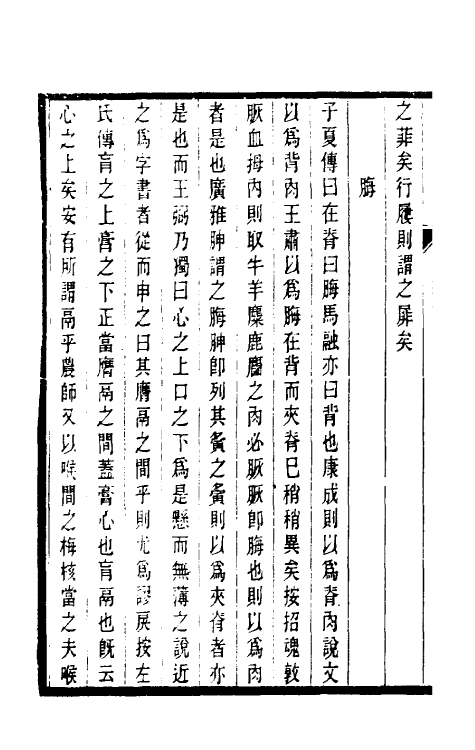 之菲矣行屨則謂之屝矣
脢
子夏傳曰在脊曰脢馬融亦曰背也康成則以爲脊肉說文
以爲背肉王肅以爲脢在背而夾脊已稍稍異矣按招魂敦
脄血拇內則取牛羊麋鹿麕之肉必脄脄卽脢也則以爲肉
者是也廣雅胂謂之脢胂卽列其夤之夤則以爲夾脊者亦
是也而王弼乃獨曰心之上口之下爲是懸而無薄之說近
之爲字書者從而申之曰其膺鬲之間乎則尤爲謬戾按左
氏傳肓之上膏之下正當膺鬲之間蓋膏心也肓鬲也旣云
心之上矣安有所謂鬲乎農師又以喉間之梅核當之夫喉